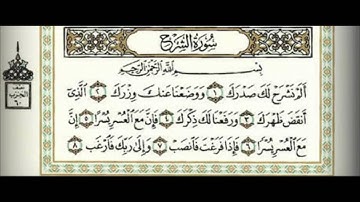 سُورَةُ الشَّرْحِ
بِسْمِ اللَّهِ الرَّحْمَٰنِ الرَّحِيمِ
أَلَمْ نَشْرَحْ لَكَ صَدْرَكَ ١ وَوَضَعْنَا عَنكَ وِزْرَكَ ٢ الَّذِي
أَنقَضَ ظَهْرَكَ ٣ وَرَفَعْنَا لَكَ ذِكْرَكَ ٤ فَإِنَّ مَعَ الْعُسْرِ يُسْرًا ٥ إِنَّ
مَعَ الْعُسْرِ يُسْرًا ٦ فَإِذَا فَرَغْتَ فَانصَبْ ٧ وَإِلَىٰ رَبِّكَ فَارْغَب ٨
الحزب
٦٠